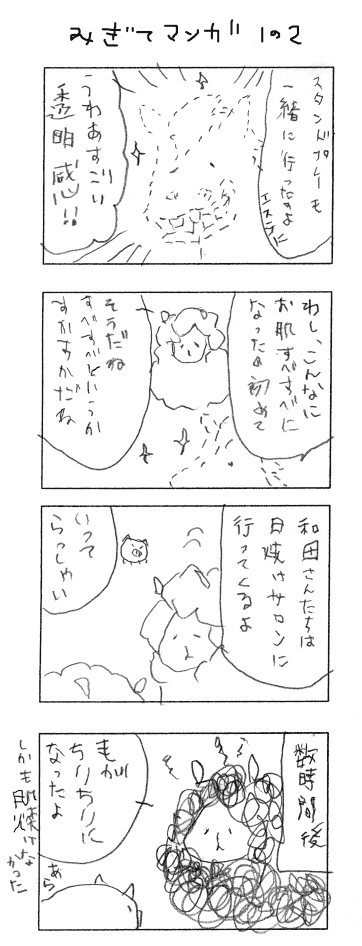 みぎてマンガ 1の2
スタンドプレーも
一緒に行ったのよ
エステに
うわあすごい
透明感!!
わし、こんなに
お肌すべすべに
なったの初めて
そうだね
すべすべというか
すかすかだね
和田さんたちは
日焼けサロンに
行ってくるよ
いって
らっしゃい
数時間後
毛が
ちりちりに
なったよ
しかも肌焼けな
かった
あら